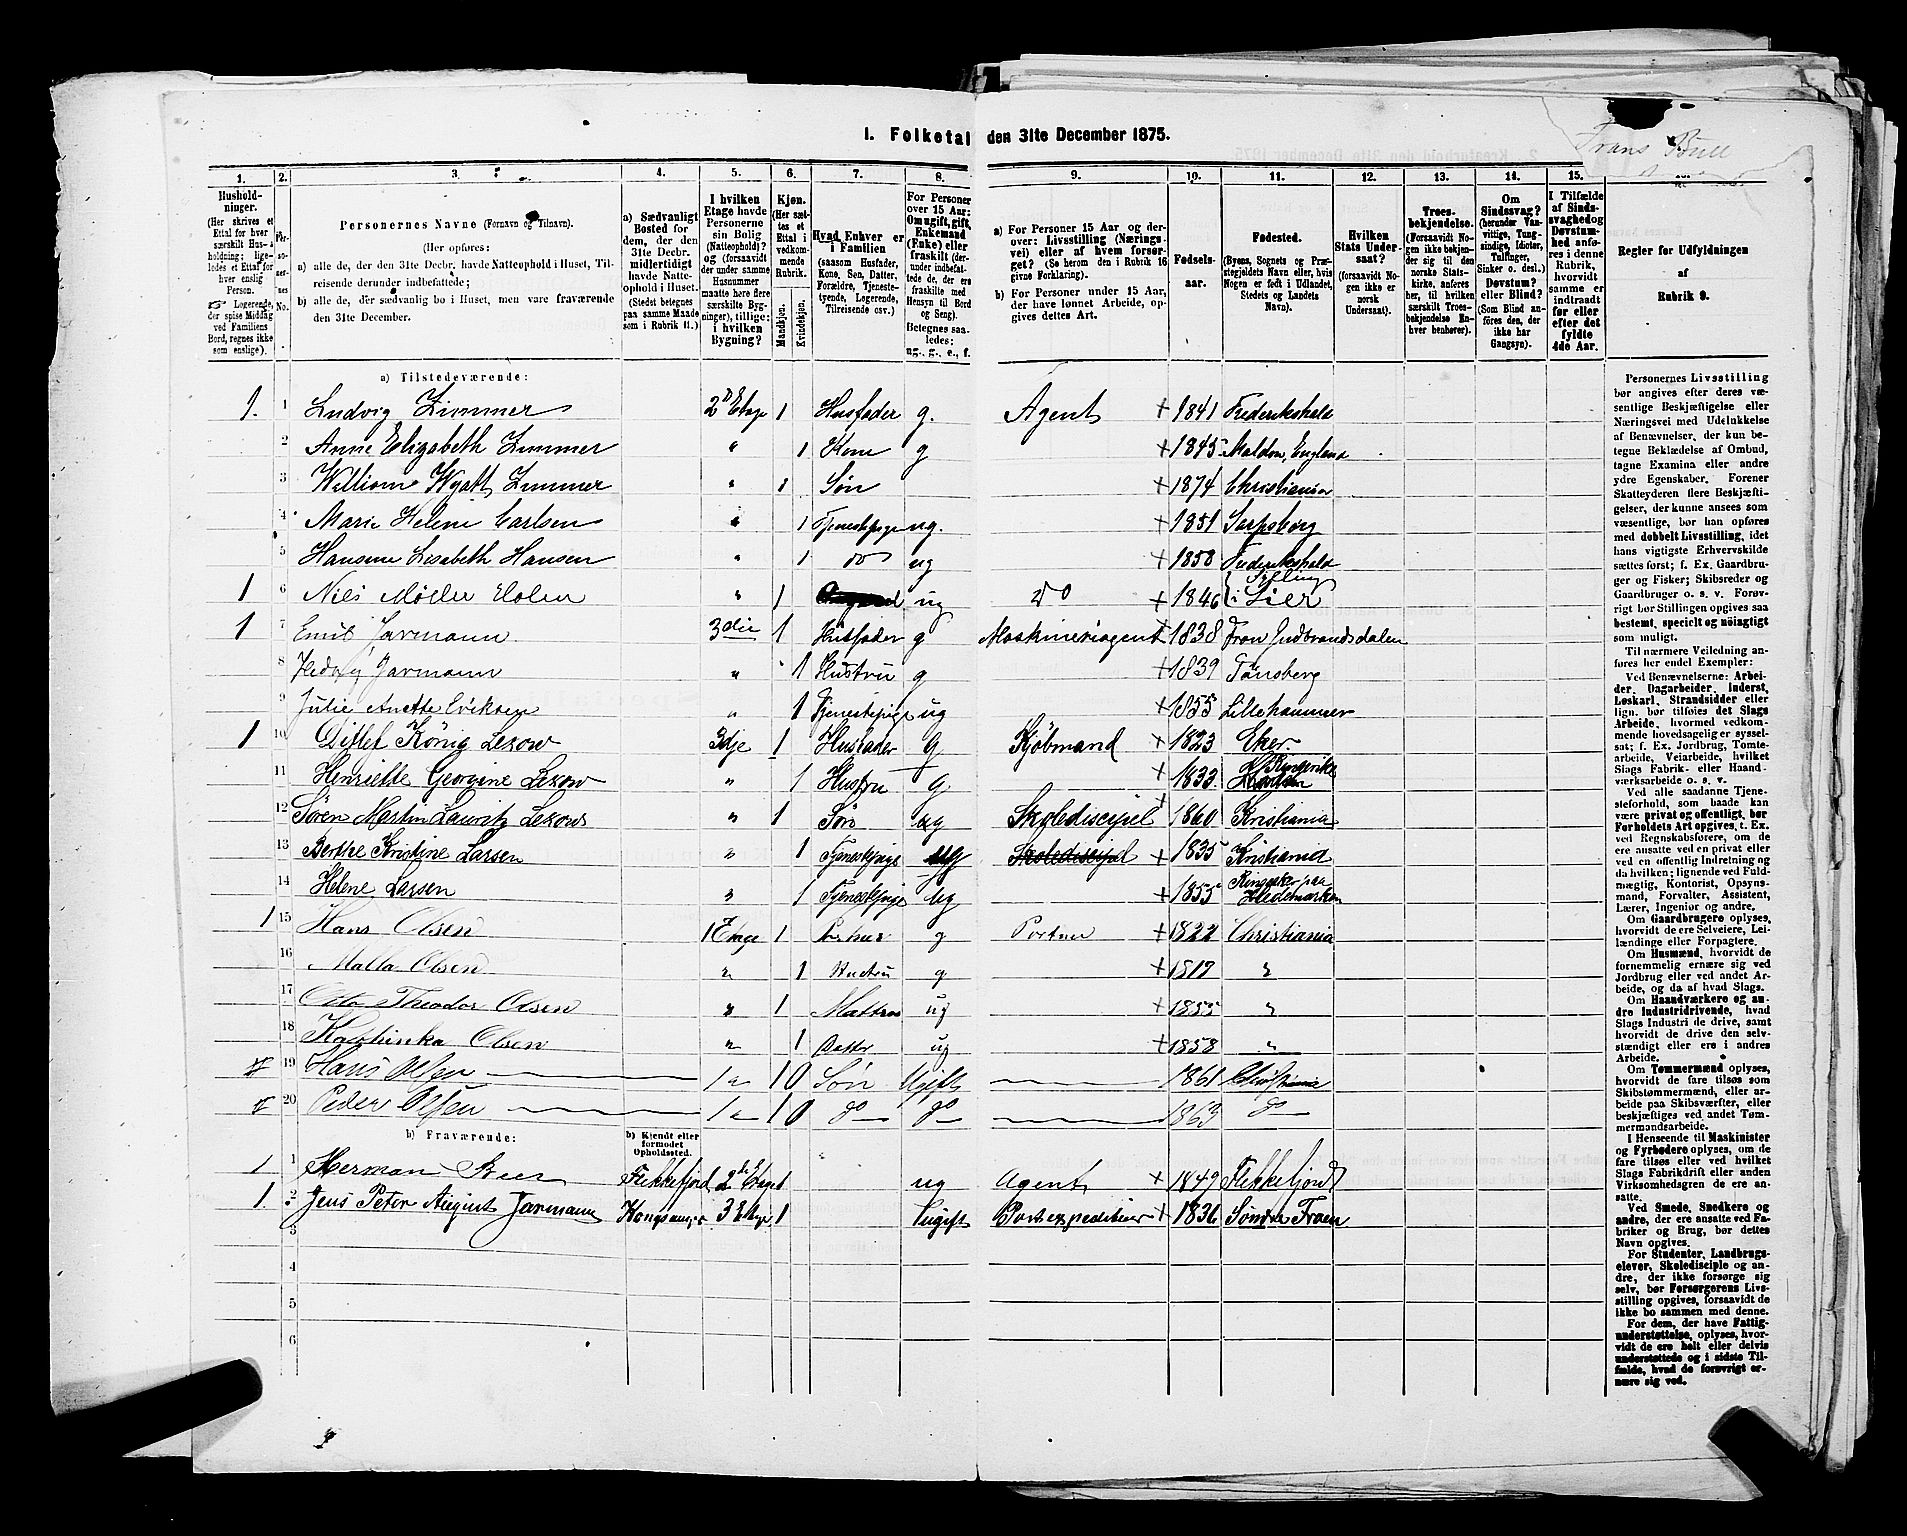 I. Folketal den 31te December 1875.
Frans Bull
1. 2. 3. 4. 5. 6. 7. 8. 9. 10. 11. 12. 13. 14. 15.
Husholdninger. (Her skrives et Ettal for hver særskilt Husholdning; ligeledes et Ettal for hver enslig Person. Logerende, der spise Middag ved Familiens Bord, regnes ikke som enslige).
Personernes No.
Personernes Navne (Fornavn og Tilnavn).
(Her opføres:
a) alle de, der den 31te Decbr. havde Natteophold i Huset, Tilreisende derunder indbefattede;
b) alle de, der sædvanlig bo i Huset, men vare fraværende den 31te December.
a) Sædvanligt Bosted for dem, der den 31te Decbr. midlertidigt havde Natteophold i Huset. (Stedet betegnes paa samme Maade som i Rubrik 11.)
I hvilken Etage havde Personerne sin Bolig (Natteophold)? og (forsaavidt der under samme Husnummer maatte høre flere særskilte Bygninger), tillige: i hvilken Bygning?
Kjøn. (Her sættes et Ettal i vedkommende Rubrik.
Mandkjøn. Kvindekjøn.
Hvad Enhver er i Familien (saasom Husfader, Kone, Søn, Datter, Forældre, Tjenestetyende, Logerende, Tilreisende osv.)
For Personer over 15 Aar: Om ugift, gift, Enkemand (Enke) eller fraskilt (derunder indbefattede de, der ere fraskilte med Hensyn til Bord og Seng). Betegnes saaledes: ug., g., e., f.
a) For Personer 15 Aar og derover: Livsstilling (Næringsvei) eller af hvem forsørget? (Se herom den i Rubrik 16 givne Forklaring).
b) For Personer under 15 Aar, der have lønnet Arbeide, opgives dettes Art.
Fødselsaar.
Fødested. (Byens, Sognets og Præstegjeldets Navn eller, hvis Nogen er født i Udlandet, Stedets og Landets Navn).
Hvilken Stats Undersaat? (forsaavidt Nogen ikke er norsk Undersaat).
Troesbekjendelse. (Forsaavidt Nogen ikke bekjender sig til den norske Statskirke, anføres her, til hvilken særskilt Troesbekjendelse Enhver henhører).
Om Sindssvag? (herunder Vanvittige, Tungsindige, Idioter, Tullinger, Sinker o. desl.) Døvstum? eller Blind? (Som Blind anføres den, der ikke har Gangsyn).
I Tilfælde af Sindssvaghed og Døvstumhed anføres i denne Rubrik, hvorvidt samme er indtraadt før eller efter det fyldte 4de Aar.
Regler for Udfyldningen af Rubrik 9.
a) Tilstedeværende:
1. 1 Ludvig Zimmer 2d Etage 1 Husfader g. Agent + 1841 Frederikshald
2 Anne Elizabeth Zimmer " 1 Kone g + 1845 Maldon, England
3 William Wyatt Zimmer " 1 Søn + 1874 Christiania
4 Marie Helene Carlsen " 1 Tjenestepige ug. + 1851 Sarpsborg
5 Hansine Lisabeth Hansen " 1 do ug + 1858 Frederikshald
1 6 Niels Møller Holen " 1 ug do + 1846 Sylling i Lier
1 7 Emil Jarmann 3die 1 Husfader g Maskineriagent + 1838 Fron Gudbrandsdalen
8 Hedvig Jarmann " 1 Hustru g + 1839 Tønsberg
9 Julie Anette Eriksen " 1 Tjenestepige ug + 1855 Lillehammer
1 10 Ditlef König Lexow 3dje 1 Husfader G Kjøbmand + 1823 Eker.
11 Henriette Georgine Lexow " 1 Hustru G + 1833 Ringerike
12 Søren Martin Lauritz Lexow " 1 Søn ug Skolediscipel + 1860 Kristiania
13 Berthe Kristine Larsen " 1 Tjenestepige ug Skolediscipel + 1835 Kristiania
14 Helene Larsen " 1 Tjenestepige ug + 1855 Ringsaker paa Hedemarken
1 15 Hans Olsen 1 Etage 1 g Portner + 1822 Christiania
16 Malla Olsen " 1 Hustru g + 1817 "
17 Otto Theodor Olsen " 1 Mattros ug + 1855 "
18 Kathinka Olsen " 1 Datter ug + 1858 "
19 Hans Olsen 1 " 1 0 Søn Ugift 1861 Christiania
20 Peder Olsen 1 " 1 0 do do 1863 do
b) Fraværende: b) Kjendt eller formodet Opholdssted.
1 1 Herman Beer Flekkefjord 2de Etage 1 ug Agent + 1849 Flekkefjord
1. 2 Jens Peter August Jarmann Kongsvinger 3 Etage 1 Ugift Postexpeditieur + 1836 Søndre Fraen
3
4
5
6
Personernes Livsstilling bør angives efter deres væsentlige Beskjæftigelse eller Næringsvei med Udelukkelse af Benævnelser, der kun betegne Beklædelse af Ombud, tagne Examina eller andre ydre Egenskaber. Forener Skatteyderen flere Beskjæftigelser, der kunne ansees som væsentlige, bør han opføres med dobbelt Livsstilling, idet hans vigtigste Erhvervskilde sættes først; f. Ex. Gaardbruger og Fisker; Skibsreder og Gaardbruger o. s. v. Forøvrigt bør Stillingen opgives saa bestemt, specielt og nøiagtigt som muligt.
Til nærmere Veiledning anføres her endel Exempler:
Ved Benævnelserne: Arbeider, Dagarbeider, Inderst, Løskarl, Strandsidder eller lign. bør tilføies det Slags Arbeide, hvormed vedkommende hovedsagelig er sysselsat; f. Ex. Jordbrug, Tomtearbeide, Veiarbeide, hvilket Slags Fabrik- eller Haandværksarbeide o. s. v.
Ved alle saadanne Tjenesteforhold, som baade kan være privat og offentligt, bør Forholdets Art opgives, t. Ex. ved Regnskabsførere, om de ere ansatte ved en privat eller ved en offentlig Indretning og da hvilken; lignende ved Fuldmægtig, Kontorist, Opsynsmand, Forvalter, Assistent, Lærer, Ingeniør og andre.
Om Gaardbrugere oplyses, hvorvidt de ere Selveiere, Leilændinge eller Forpagtere.
Om Husmænd, hvorvidt de fornemmelig ernære sig ved Jordbrug eller ved andet Arbeide, og da af hvad Slags.
Om Haandværkere og andre Industridrivende, hvad Slags Industri de drive, samt hvorvidt de drive den selvstændigt eller ere i andres Arbeide.
Om Tømmermænd oplyses, hvorvidt de fare tilsøs som Skibstømmermænd, eller arbeide paa Skibsværfter, eller beskjæftiges ved andet Tømmermandsarbeide.
I Henseende til Maskinister og Fyrbødere oplyses, om de fare tilsøs eller ved hvilket Slags Fabrikdrift eller anden Virksomhedsgren de ere ansatte.
Ved Smede, Snedkere og andre, der ere ansatte ved Fabriker og Brug, bør dettes Navn opgives.
For Studenter, Landbrugselever, Skoledisciple og andre, der ikke forsørge sig selv, bør Forsørgerens Livsstilling opgives, forsaavidt de ikke bo sammen med denne.
For dem, der have Fattigunderstøttelse, oplyses, hvorvidt de ere helt eller delvis understøttede og i sidste Tilfælde, hvad de forøvrigt ernære sig ved.